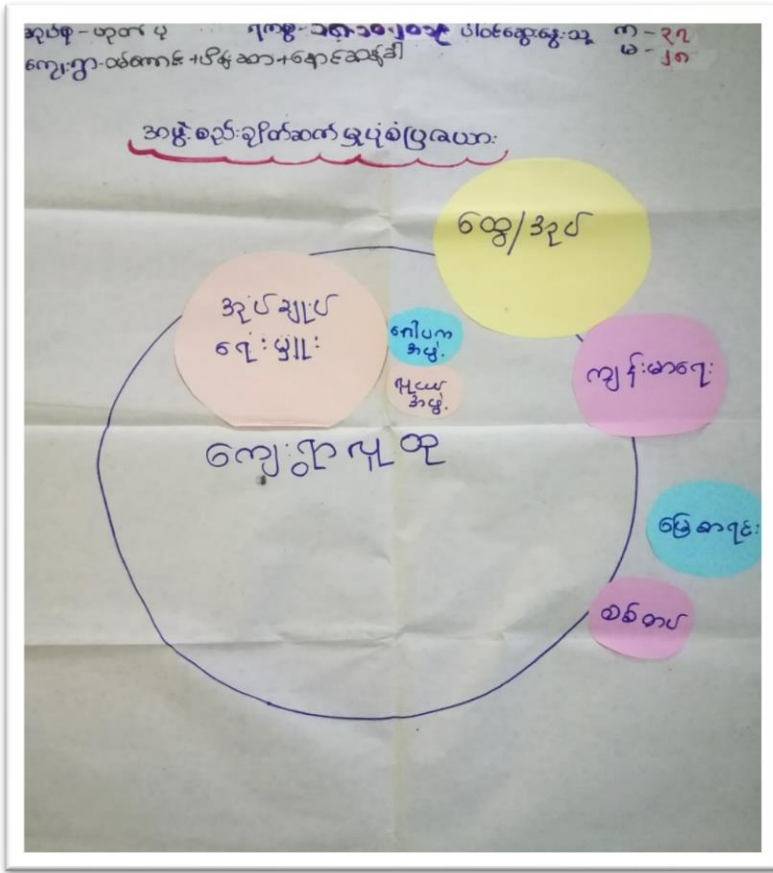 အုပ်စု - ဟုတ်ပု ရက်စွဲ - ၁၅.၁၀.၂၀၁၉ ပါဝင်ဆွေးနွေးသူ ကျ - ၃၇
မ - ၂၈
ကျေးရွာ - ထမ်ကောင် + ပိန်းဆာ + နောင်ဆန်ခါ
အဖွဲ့စည်းချိတ်ဆက်မှုပုံစံပြဇယား
ထွေ/အုပ်
အုပ်ချုပ်
ရေးမှူး
ဂေါပက
အဖွဲ့
လူငယ်
အဖွဲ့
ကျန်းမာရေး
ကျေးရွာလူထု
မြေစာရင်း
စစ်တပ်